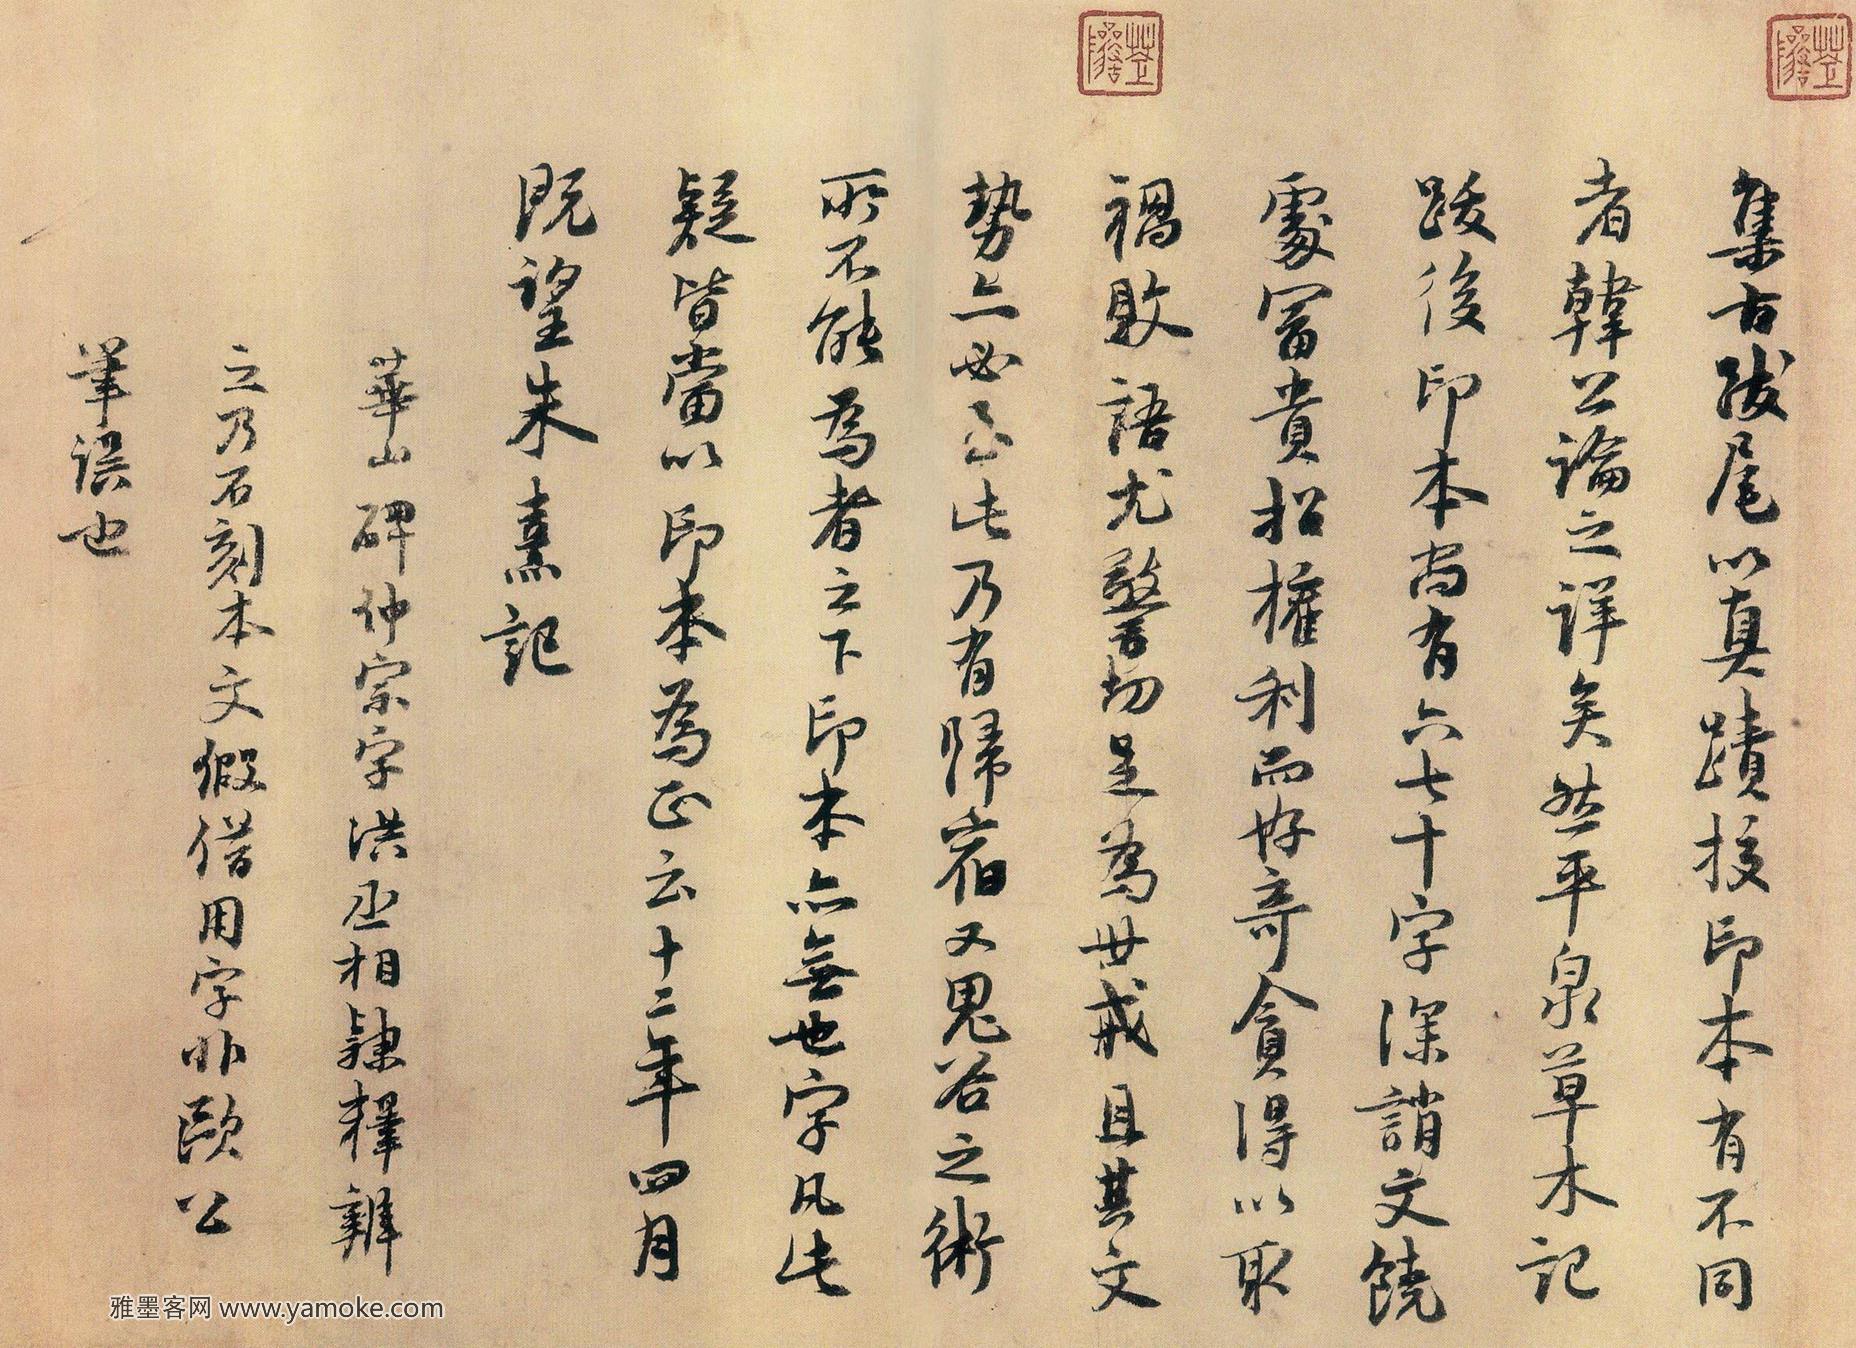 集古跋尾以真蹟挍印本有不同
者韓公論之詳矣然平泉草木記
跋後印本尚有六七十字深誚文饒
處富貴招權利而好奇貪得以取
禍敗語尤警切足為世戒且其文
勢亦必至此乃有歸宿又鬼谷之術
所不能為者之下印本亦無也字凡此
疑皆當以印本為正云十二年四月
既望朱熹記
華山碑仲宗字洪丞相隷釋辨
之乃石刻本文假借用字非歐公
筆误也
雅墨客网 www.yamoke.com